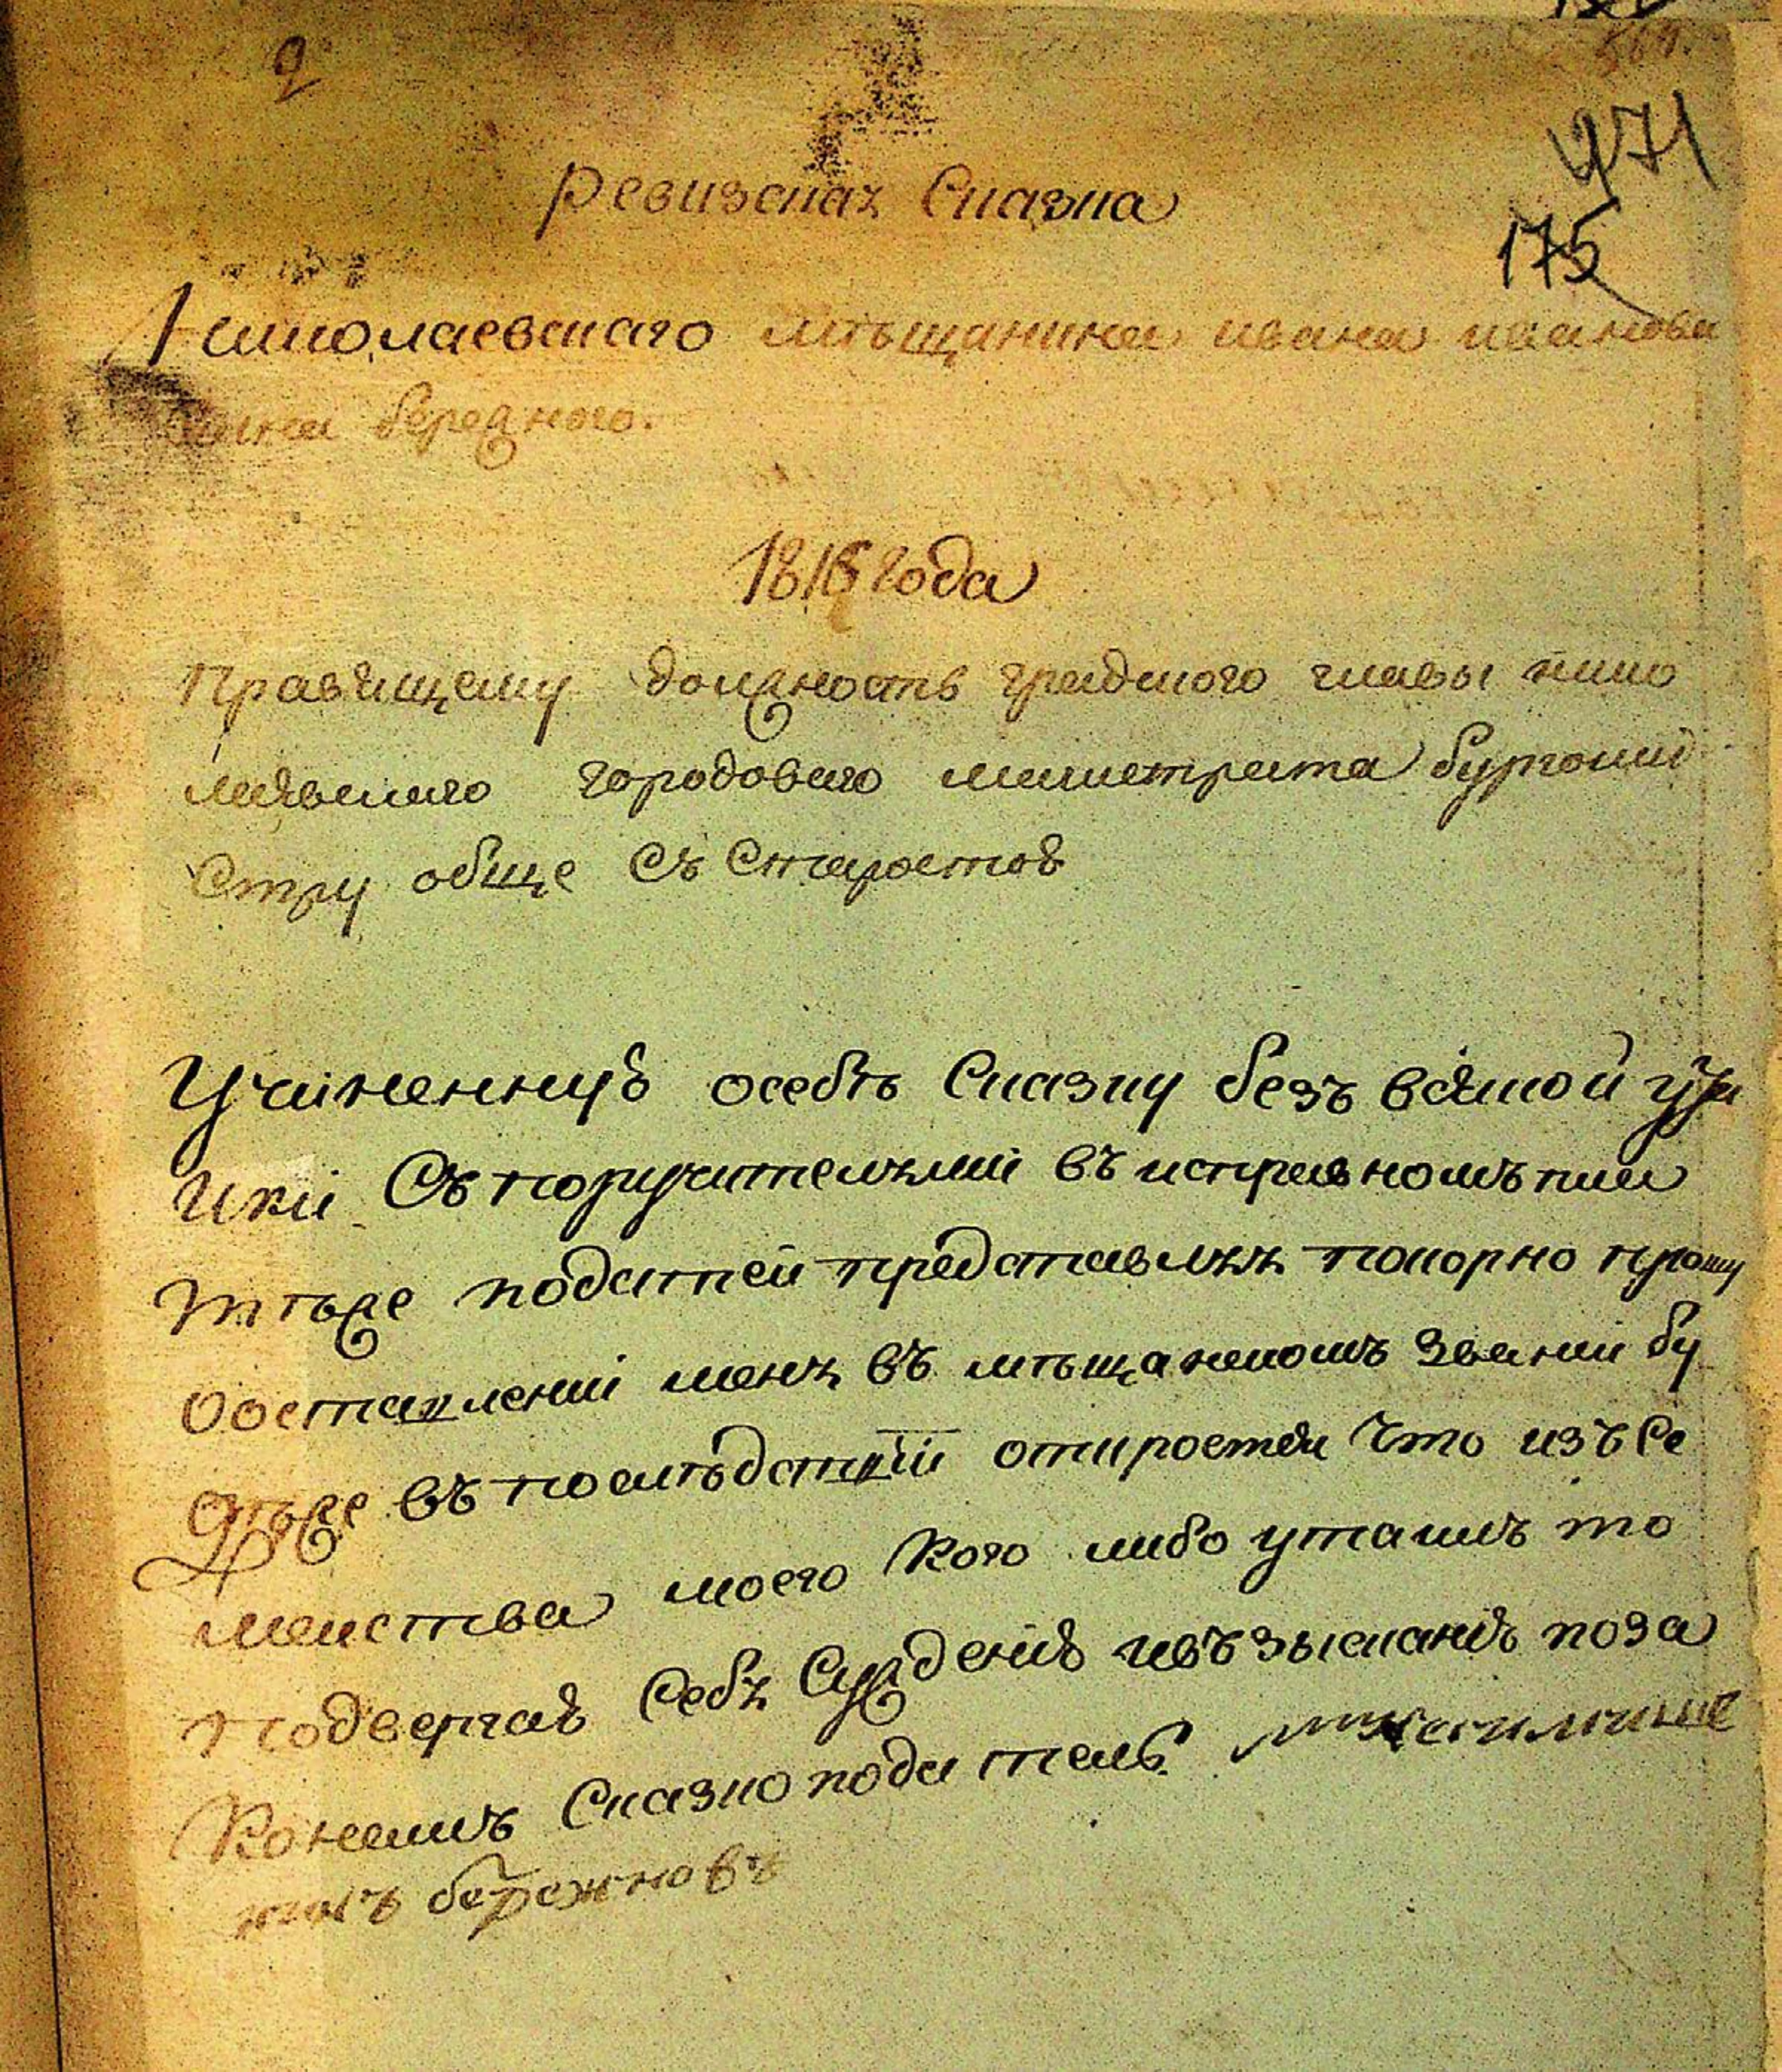 9
564.
971
175
Ревизская Сказка
Николаевскаго мѣщанина ивана иванова
сина бережного.
1816 года
Правящему должность градского главы нико
лаевскаго городоваго магистрата бургоми
Стру обще Съ Старостою
Учиненную особѣ Сказку безъ всякой ута
ики Съ поручителями въ исправномъ пла
тѣже податей представляя покорно прошу
О оставлении меня въ мѣщанскомъ звании бу
дѣже въ последствіи откроется Что изъ Се
мейства моего Кого либо утаилъ то
подвергаю Себя Суждению и въ зысканию поза
Конамъ Сказко подателъ
бережновъ